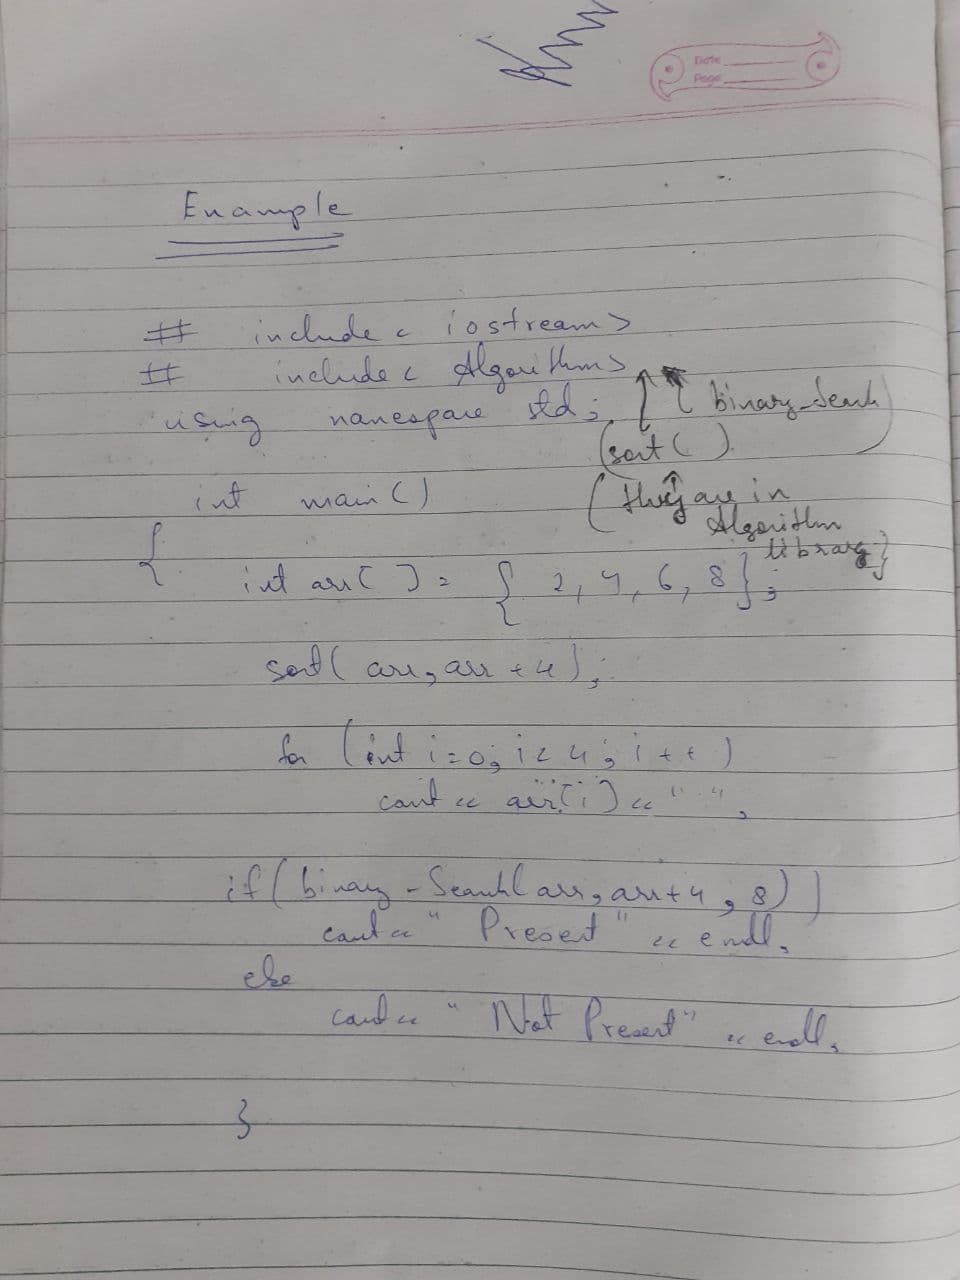 Date
Page
Example
# include < iostream>
# include < Algorithm>
using namespace std;
binary_Search
(sort( )
int main()
( they are in
Algorithm
library}
{
int arr[ ] = { 2, 4, 6, 8 };
sort( arr, arr + 4 );
for (int i=0; i< 4; i++ )
cout << arr[i] << " ";
if( binary - Search( arr, arr+4 , 8) )
cout << " Present " << endl;
else
cout << " Not Present" << endl;
}